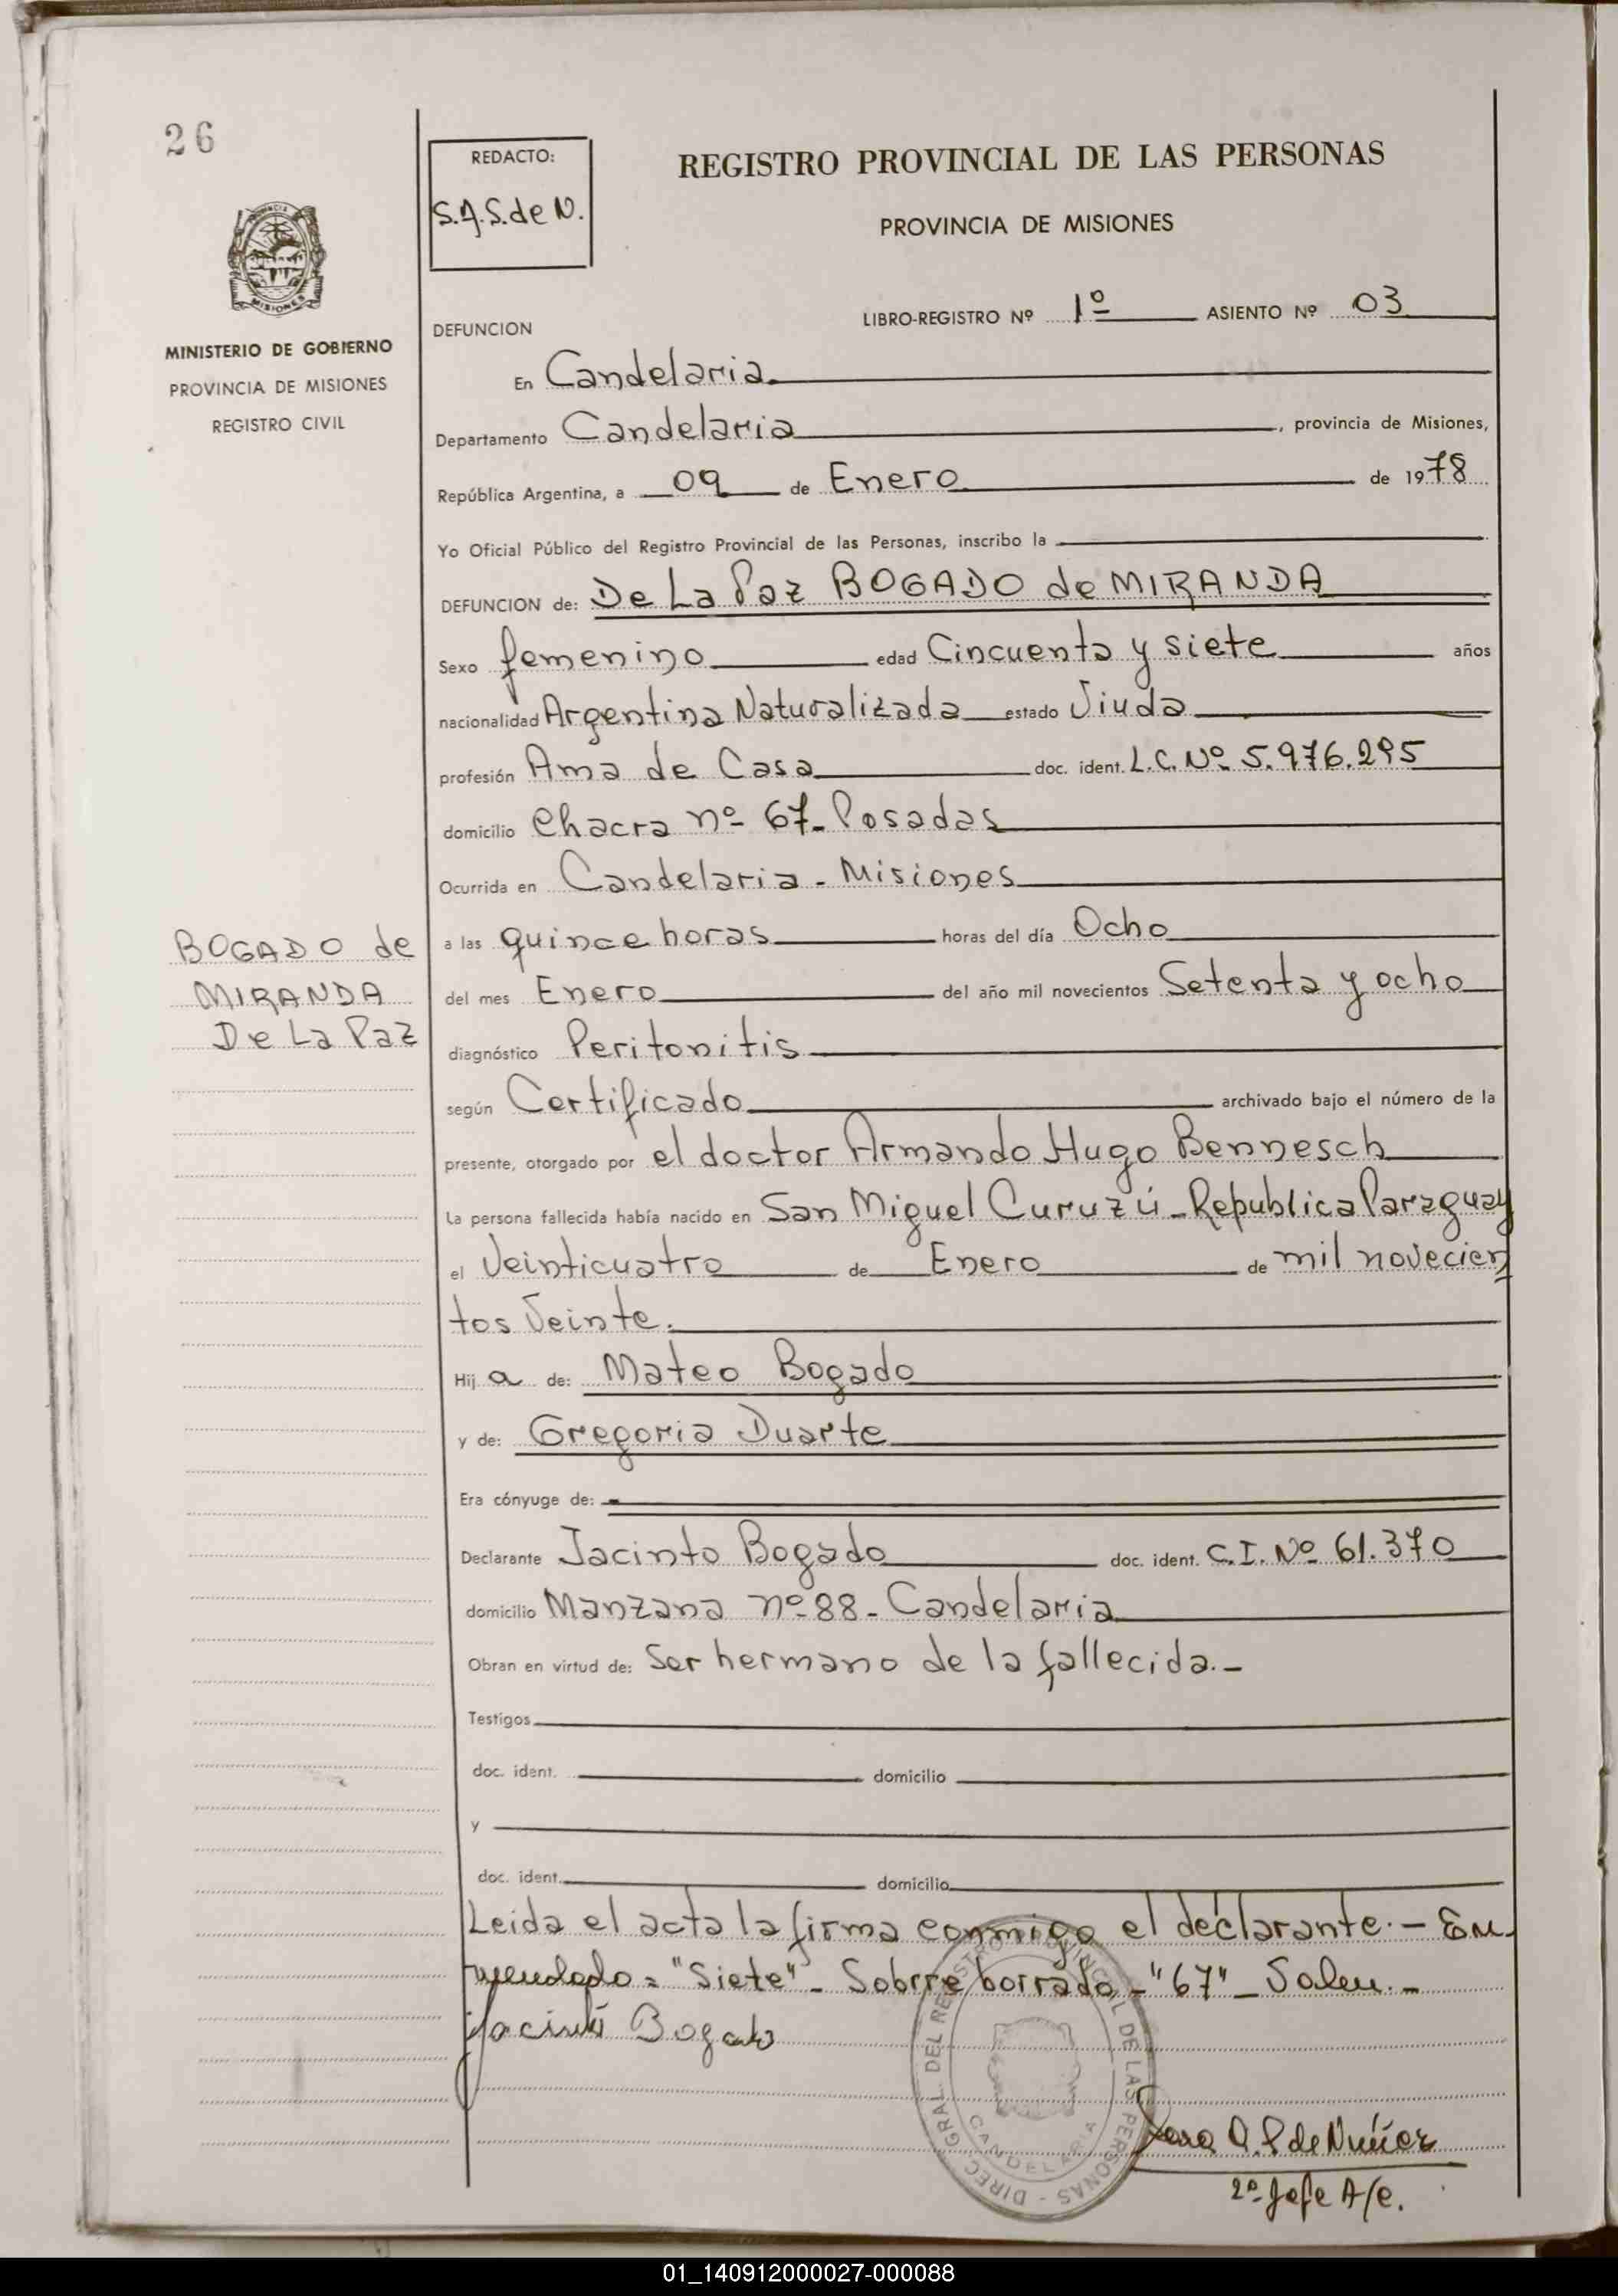 26
REDACTO:
S.A.S. de N.
REGISTRO PROVINCIAL DE LAS PERSONAS
PROVINCIA DE MISIONES
MISIONES
MINISTERIO DE GOBIERNO
PROVINCIA DE MISIONES
REGISTRO CIVIL
LIBRO-REGISTRO Nº 1º ASIENTO Nº 03
DEFUNCION
En Candelaria
Departamento Candelaria, provincia de Misiones,
República Argentina, a 09 de Enero de 1978
Yo Oficial Público del Registro Provincial de las Personas, inscribo la
DEFUNCION de: De La Paz BOGADO de MIRANDA
Sexo femenino edad Cincuenta y siete años
nacionalidad Argentina Naturalizada estado Viuda
profesión Ama de Casa doc. ident. L.C. Nº 5.976.295
domicilio Chacra nº 67- Posadas
Ocurrida en Candelaria - Misiones
a las quince horas horas del día Ocho
BOGADO de
MIRANDA
De La Paz
del mes Enero del año mil novecientos Setenta y ocho
diagnóstico Peritonitis
según Certificado archivado bajo el número de la
presente, otorgado por el doctor Armando Hugo Bennesch
La persona fallecida había nacido en San Miguel Curuzú - Republica Paraguay
el Veinticuatro de Enero de mil novecien
tos Veinte.
Hij a de: Mateo Bogado
y de: Gregoria Duarte
Era cónyuge de: -
Declarante Jacinto Bogado doc. ident. C.I. Nº 61.370
domicilio Manzana nº 88 - Candelaria
Obran en virtud de: Ser hermano de la fallecida.-
Testigos
doc. ident. domicilio
y
doc. ident. domicilio
Leida el acta la firma conmigo el declarante.- En
mendado = "Siete" - Sobrre borrado - "67" - Valen.-
Jacinto Bogado
DIREC. GRAL. DEL REGISTRO PROVINCIAL DE LAS PERSONAS -
CANDELARIA
Sara A. S. de Núñez
2º Jefe A/c.
01_140912000027-000088